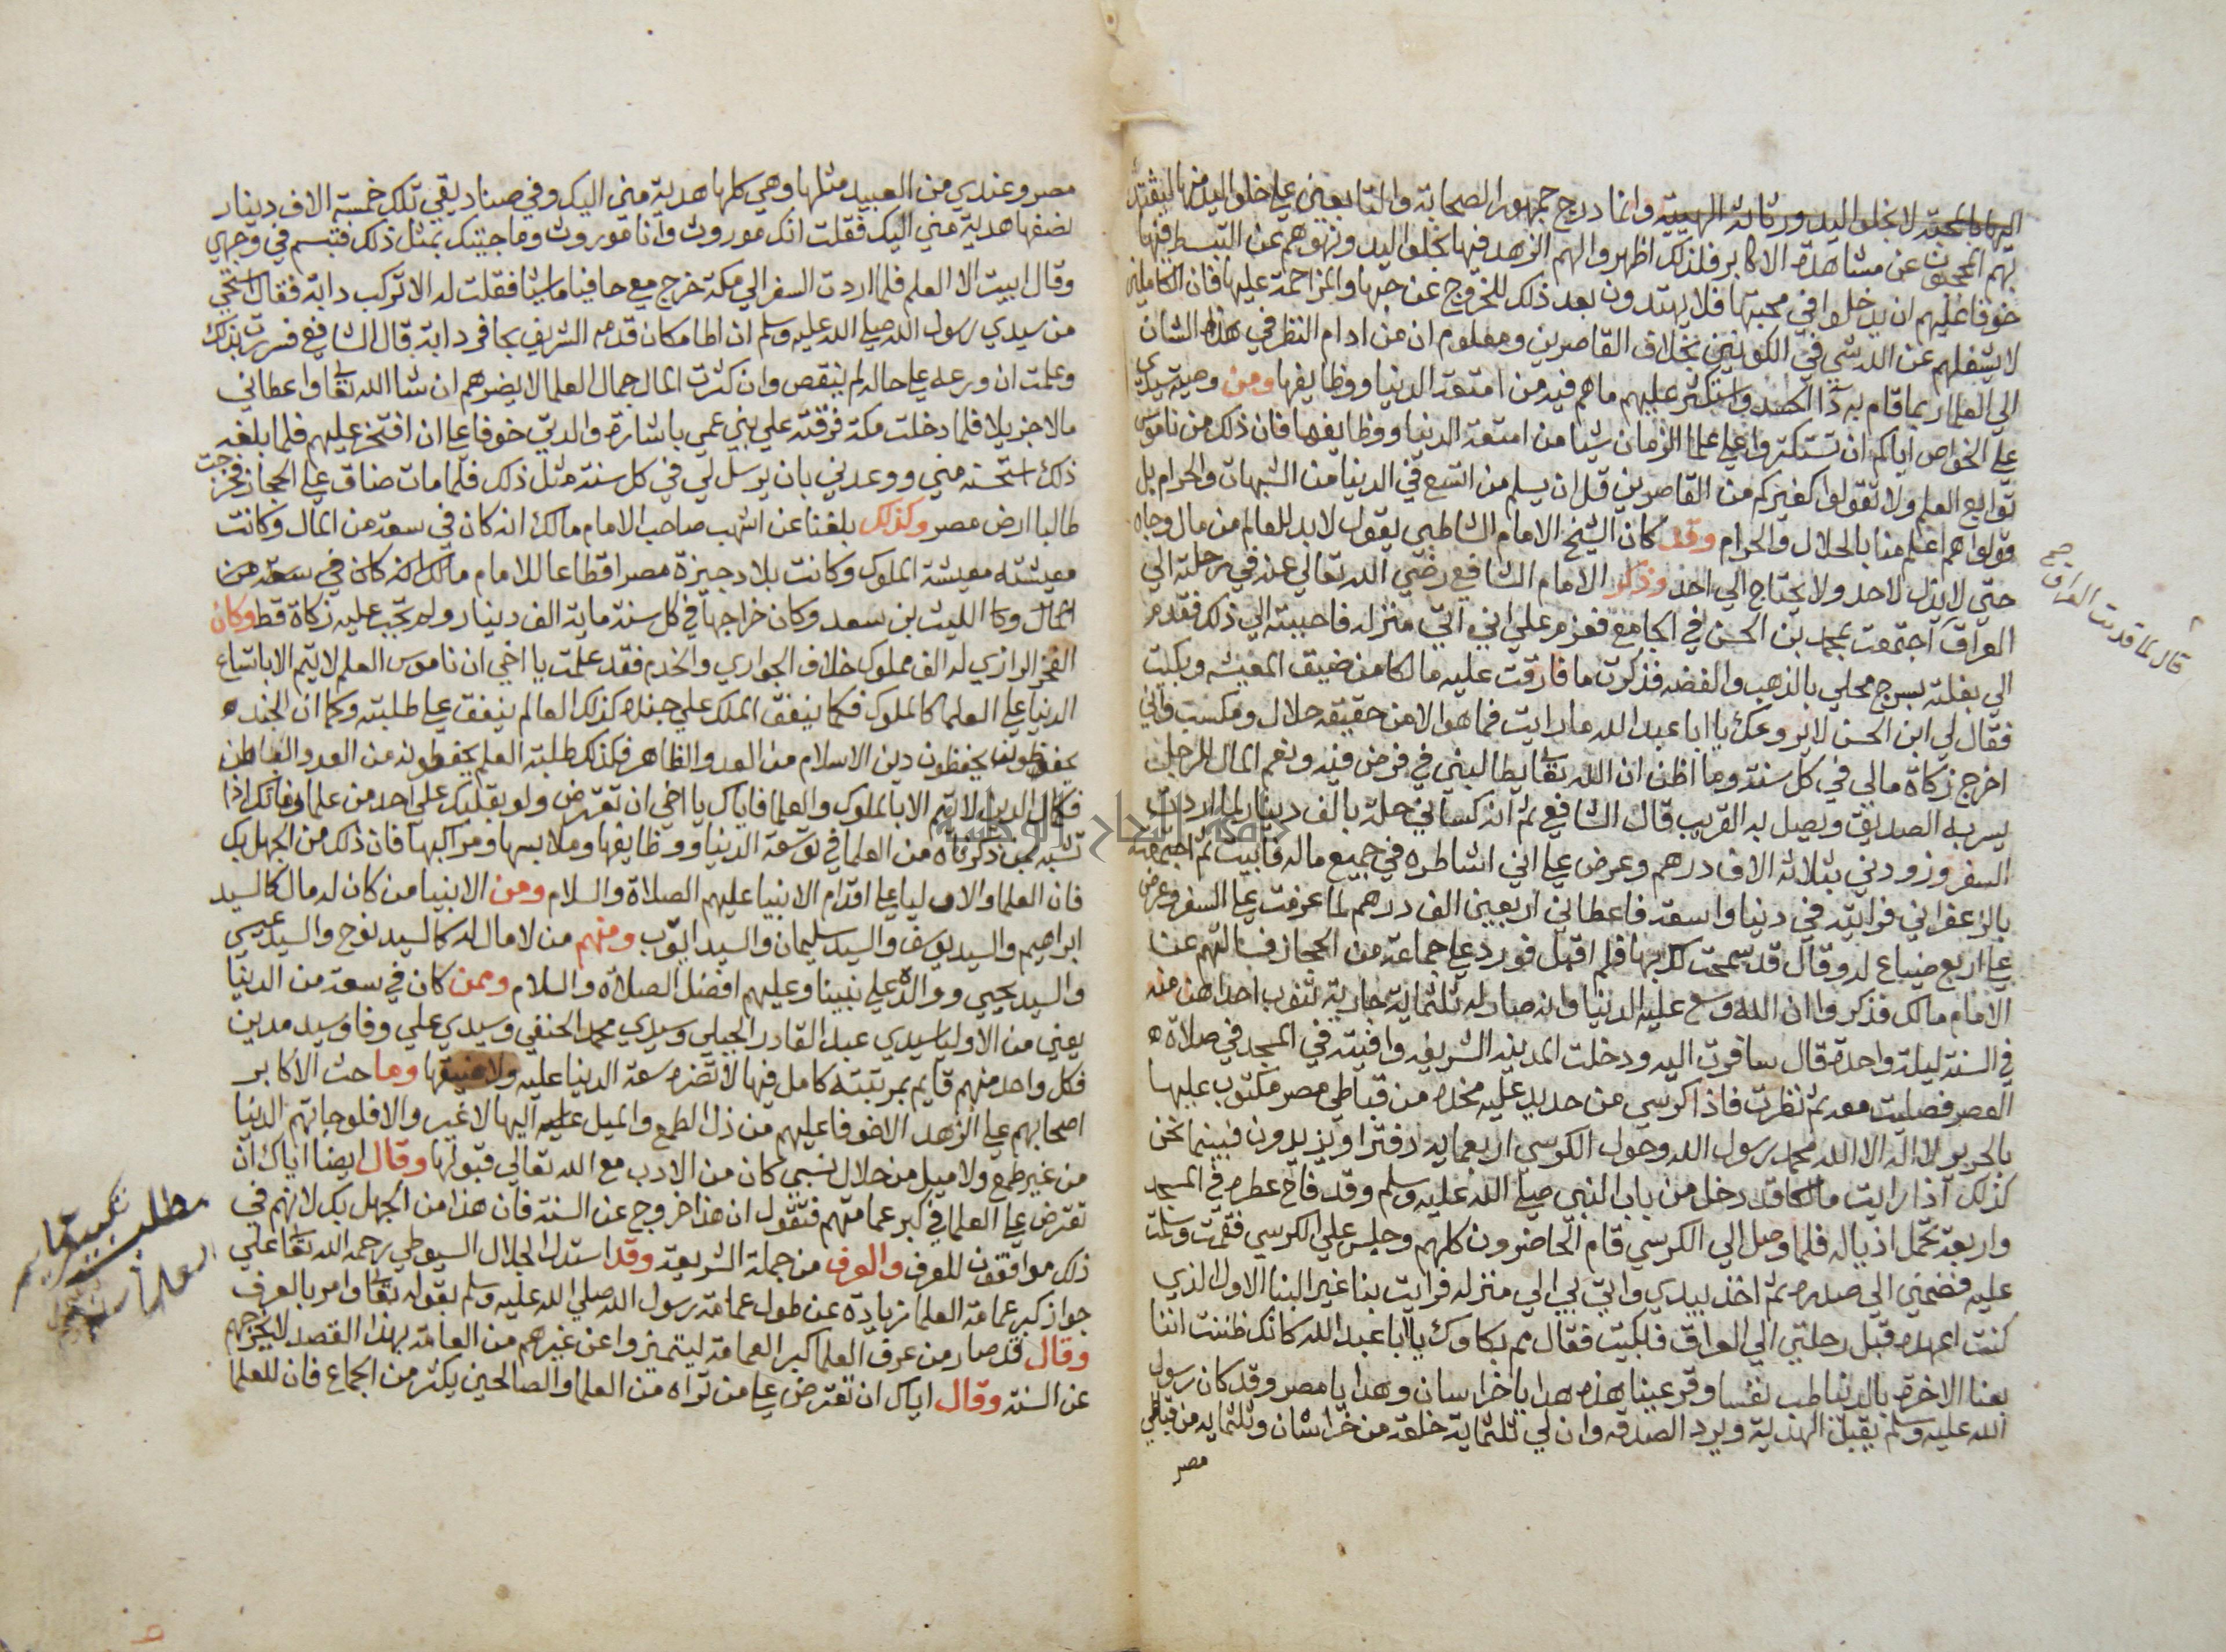 اليها بالمحبة لا بخلو اليد ورثاثة الهيية وانما درج جمهور الصحابة والتابعين علي خلو اليد منها ليقتدي
بهم المحجوبون عن مشاهدة الاكابر فلذلك اظهروا لهم الزهد فيها بخلو اليد ونهوهم عن التبسط فيها
خوفا عليهم ان يدخلوا في محبتها فلا يهتدون بعد ذلك للخروج عن حبها والمزاحمة عليها فان الكاملين
لا يشغلهم عن الله شي في الكونين بخلاف القاصرين ومعلوم ان من ادام النظر في هذا الشان
الي العلما ربما قام به ذا الحسد واستكثر عليهم ما هم فيه من امتعة الدنيا ووظايفها ومن وصية سيدي
علي الخواص اياكم ان تستكثروا علي علما الزمان شيا من امتعة الدنيا ووظايفها فان ذلك من ناموس
توابع العلم ولا تقولوا كغيركم من القاصرين قل ان يسلم من اتسع في الدنيا من الشبهات والحرام بل
قولوا هم اعلم منا بالحلال والحرام وقد كان الشيخ الامام الشاطبي يقول لا بد للعالم من مال وجاه
حتي لا يذل لاحد ولا يحتاج الي احد وذكر الامام الشافعي رضي الله تعالي عنه في رحلته الي
قال لما قدمت العراق صح
العراق اجتمعت بمحمد بن الحسن في الجامع فعزم علي اني اتي منزله فاجبته الي ذلك فقدم
الي بغلة بسرج محلي بالذهب والفضة فذكرت ما فارقت عليه مالكا من ضيق المعيشة وبكيت
فقال لي ابن الحسن لا يروعك يا ابا عبد الله ما رايت فما هو الا من حقيقة حلال ومكسب واني
اخرج زكاة مالي في كل سنة وما اظن ان الله تعا يطالبني في فرض فيه ونعم المال للرجل
يسر به الصديق ويصل به القريب قال الشافعي ثم انه كساني حلة بالف دينار لما اردت
السفر وزودني بثلاثة الاف درهم وعرض علي اني اشاطره في جميع ماله فابيت ثم اجتمعت
بالزعفراني فرايته في دنيا واسعة فاعطاني اربعين الف درهم لما عزمت علي السفر وعرض
علي اربع ضياع له وقال قد سمحت لك بها فلم اقبل فورد علي جماعة من الحجاز فسالتهم عن
الامام مالك فذكروا ان الله وسع عليه الدنيا وانه صار له ثلثماية جارية تنوب احداهن منه
في السنة ليلة واحدة قال سافرت اليه ودخلت المدينة الشريفة وافيته في المسجد في صلاة
العصر فصليت معه ثم نظرت فاذا كرسي من حديد عليه مخدة من قباطي مصر مكتوب عليها
بالحرير لا اله الا الله محمد رسول الله وحول الكرسي اربعماية دفتر او يزيدون فبينما نحن
كذلك اذا رايت مالكا قد دخل من باب النبي صلي الله عليه وسلم وقد فاح عطره في المسجد
واربعة تحمل اذياله فلما وصل الي الكرسي قام الحاضرون كلهم وجلس علي الكرسي فقمت وسلمت
عليه فضمني الي صدره ثم اخذ بيدي واتي بي الي منزله فرايت بنا غير البنا الاول الذي
كنت اعهده قبل رحلتي الي العراق فبكيت فقال مم بكاوك يا ابا عبد الله كانك ظننت اننا
بعنا الاخرة بالدنيا طب نفسا وقر عينا هذه هدايا خراسان وهدايا مصر وقد كان رسول
الله عليه وسلم يقبل الهدية ويرد الصدقة وان لي ثلثماية خلعة من خراسان وثلثماية من قباطي
مصر
مصر وعندي من العبيد مثلها وهي كلها هدية مني اليك وفي صناديقي تلك خمسة الاف دينار
نصفها هدية مني اليك فقلت انك موروث وانا موروث وما جيتك بمثل ذلك فتبسم في وجهي
وقال ابيت الا العلم فلما اردت السفر الي مكة خرج مع حافيا ماشيا فقلت له الا تركب دابة فقال استحي
من سيدي رسول الله صلي الله عليه وسلم ان اطا مكان قدمه الشريف بحافر دابة قال الشافعي فسررت بذلك
وعلمت ان ورعه علي حاله لم ينقص وان كثرت المال جمال العلما لا يضرهم ان شا الله تعا واعطاني
مالا جزيلا فلما دخلت مكة فرقته علي بني عمي باشارة والدتي خوفا علي ان افتخر عليهم فلما بلغه
ذلك استحسنه مني ووعدني بان يرسل لي في كل سنة مثل ذلك فلما مات ضاق علي الحجاز فخرجت
طالبا ارض مصر وكذلك بلغنا عن اشهب صاحب الامام مالك انه كان في سعة من المال وكانت
معيشته معيشة الملوك وكانت بلاد جيزة مصر اقطاعا للامام مالك انه كان في سعة من
المال وكا الليث بن سعد وكان خراجها في كل سنة ماية الف دينار ولم تجب عليه زكاة قط وكان
الفخر الرازي له الف مملوك خلاف الجواري والخدم فقد علمت يا اخي ان ناموس العلم لا يتم الا باتساع
الدنيا علي العلما كالملوك فكما ينفق الملك علي جنده كذلك العالم ينفق علي طلبته وكما ان الجند
يحفظونه يحفظون دين الاسلام من العدو الظاهر فكذلك طلبة العلم يحفظونه من العدو الباطن
فكمال الدين لا يتم الا بالملوك والعلما فاياك يا اخي ان تعترض ولو بقلبك علي احد من علما زمانك اذا
تشبه بمن ذكرناه من العلما في توسعة الدنيا ووظايفها وملابسها ومراكبها فان ذلك من الجهل بك
فان العلما والاوليا علي اقدام الانبيا عليهم الصلاة والسلام ومن الانبيا من كان له مال كالسيد
ابراهيم والسيد يوسف والسيد سليمان والسيد ايوب ومنهم من لا مال له كالسيد نوح والسيد عيسي
والسيد يحيي ووالده علي نبينا وعليهم افضل الصلاة والسلام وممن كان في سعة من الدنيا
يعني من الاوليا سيدي عبد القادر الجيلي وسيدي محمد الحنفي وسيدي علي وفا وسيد مدين
فكل واحد منهم قايم بمرتبته كامل فيها لا تضره سعة الدنيا عليه ولا ضيقها وما حث الاكابر
اصحابهم علي الزهد الا خوفا عليهم من ذل الطمع والميل عليه اليها لا غير والا فلو جاتهم الدنيا
من غير طمع ولا ميل من حلال نسبي كان من الادب مع الله تعالي قبولها وقال ايضا اياك ان
تعترض علي العلما في كبر عمامتهم فتقول ان هذا خروج عن السنة فان هذا من الجهل بك لانهم في
ذلك موافقون للعرف والعرف من جملة الشريعة وقد استدل الجلال السيوطي رحمه الله تعا علي
مطلب تكبير عمايم
جواز كبر عمامة العلما زيادة عن طول عمامة رسول الله صلي الله عليه وسلم بقوله تعا وامر بالعرف
وقال قد صار من عرف العلما كبر العمامة ليتميزوا عن غيرهم من العامة بهذا القصد لا يخرجهم
عن السنة وقال اياك ان تعترض علي من تراه من العلما والصالحين يكثر من الجماع فان للعلما
جامعة النجاح الوطنية